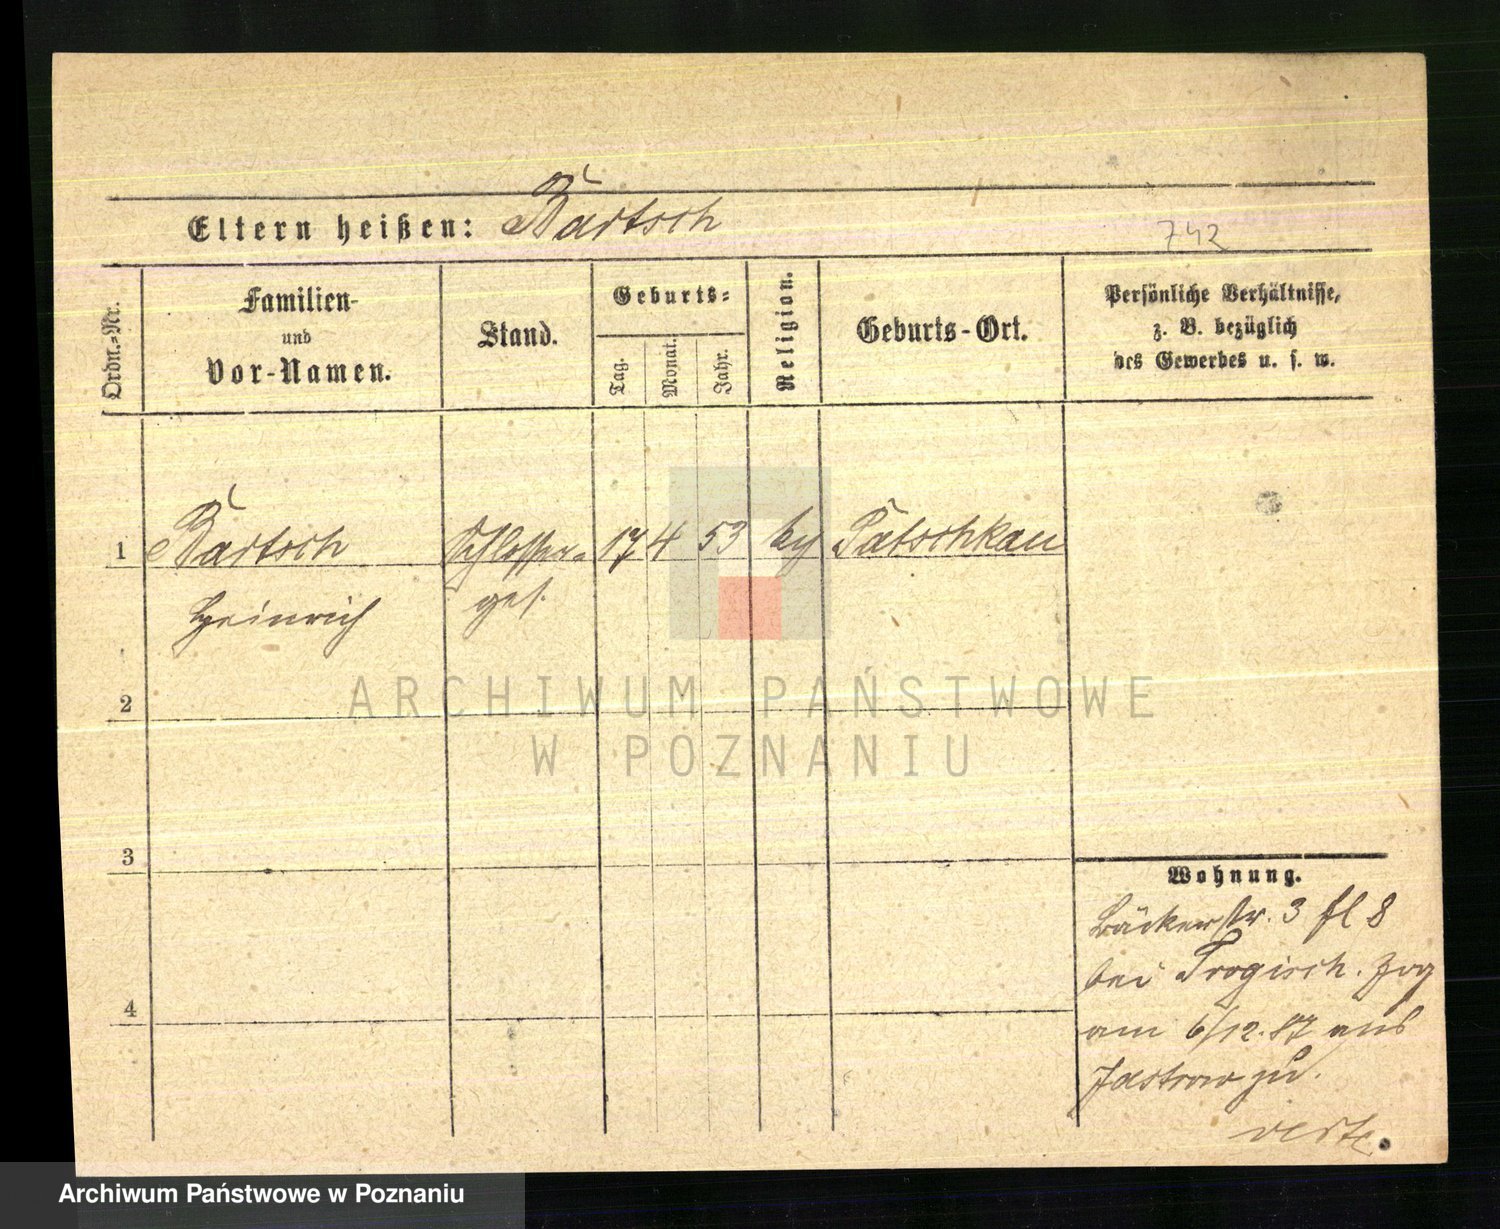 Eltern heißen: Bartsch
742
Ordn.-Nr.
Familien-
und
Vor-Namen.
Stand.
Geburts-
Tag.
Monat.
Jahr.
Religion.
Geburts-Ort.
Persönliche Verhältnisse,
z. B. bezüglich
des Gewerbes u. s. w.
1 Bartsch Schlosser- 17 4 53 Patschkau
Heinrich ges.
2
3
4
Wohnung.
Bäckerstr. 3 fl 8
bei Trogisch. Zog
am 6/12.87 aus
Jastrow zu.
verte
ARCHIWUM PAŃSTWOWE
W POZNANIU
Archiwum Państwowe w Poznaniu